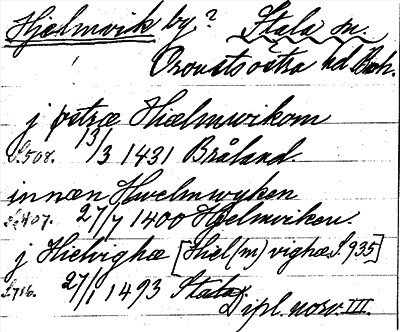 Hjelmvik by? Stala sn.
Orousts östra hd Boh.
j østræ Hiælmwikom
S. 508. 13/3 1431 Bråland.
innæn Hwelmwyken
S. 407. 27/7 1400 Hjelmviken.
j Hielvighæ [Hiel(m)vighæ S. 935]
S. 716. 27/1 1493 Stala
Dipl. norv. III.